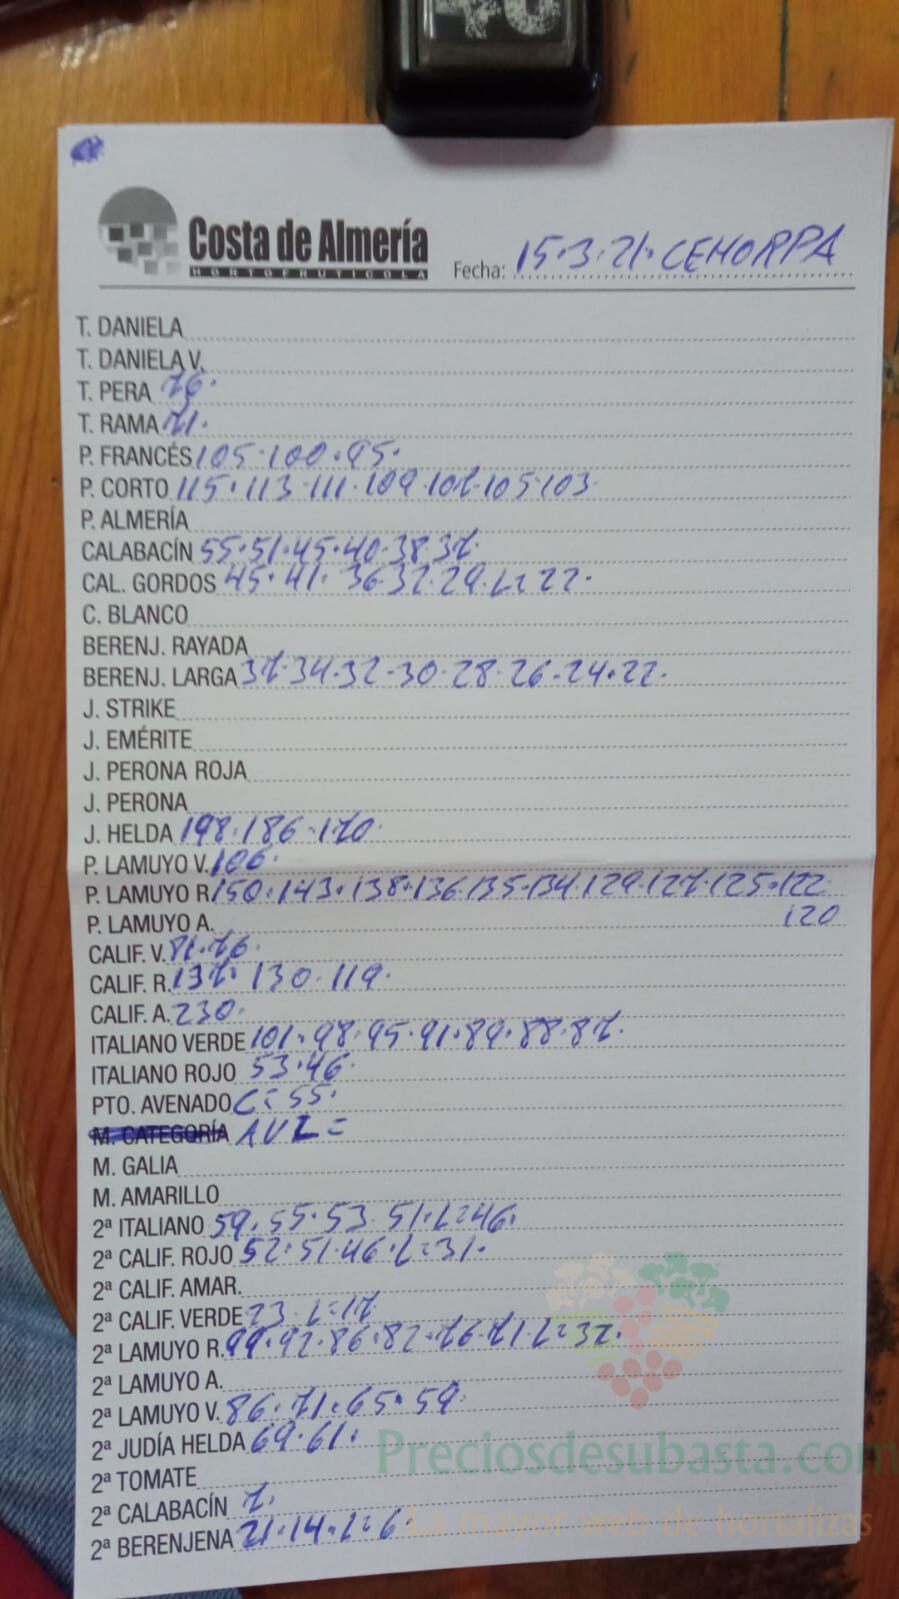 Costa de Almería
HORTOFRUTICOLA
Fecha: 15·3·21· CEHORPA
T. DANIELA
T. DANIELA V.
T. PERA 76·
T. RAMA 71·
P. FRANCÉS 105·100·95·
P. CORTO 115·113·111·109·107·105·103·
P. ALMERÍA
CALABACÍN 55·51·45·40·38·37·
CAL. GORDOS 45·41·36·32·29·L=22·
C. BLANCO
BERENJ. RAYADA
BERENJ. LARGA 37·34·32·30·28·26·24·22·
J. STRIKE
J. EMÉRITE
J. PERONA ROJA
J. PERONA
J. HELDA 198·186·170·
P. LAMUYO V. 106·
P. LAMUYO R 150·143·138·136·135·134·129·127·125·122
P. LAMUYO A. 120
CALIF. V. 81·76·
CALIF. R. 137·130·119·
CALIF. A. 230·
ITALIANO VERDE 101·98·95·91·89·88·87·
ITALIANO ROJO 53·46·
PTO. AVENADO C=55·
M. CATEGORÍA AVL=
M. GALIA
M. AMARILLO
2ª ITALIANO 59·55·53·51·L=46·
2ª CALIF. ROJO 52·51·46·L=31·
2ª CALIF. AMAR.
2ª CALIF. VERDE 23·L=17
2ª LAMUYO R. 99·92·86·82·76·71·L=32·
2ª LAMUYO A.
2ª LAMUYO V. 86·71·65·59·
2ª JUDÍA HELDA 69·61·
Preciosdesubasta.com
2ª TOMATE
2ª CALABACÍN 7·
La mayor web de hortalizas
2ª BERENJENA 21·14·L=6·